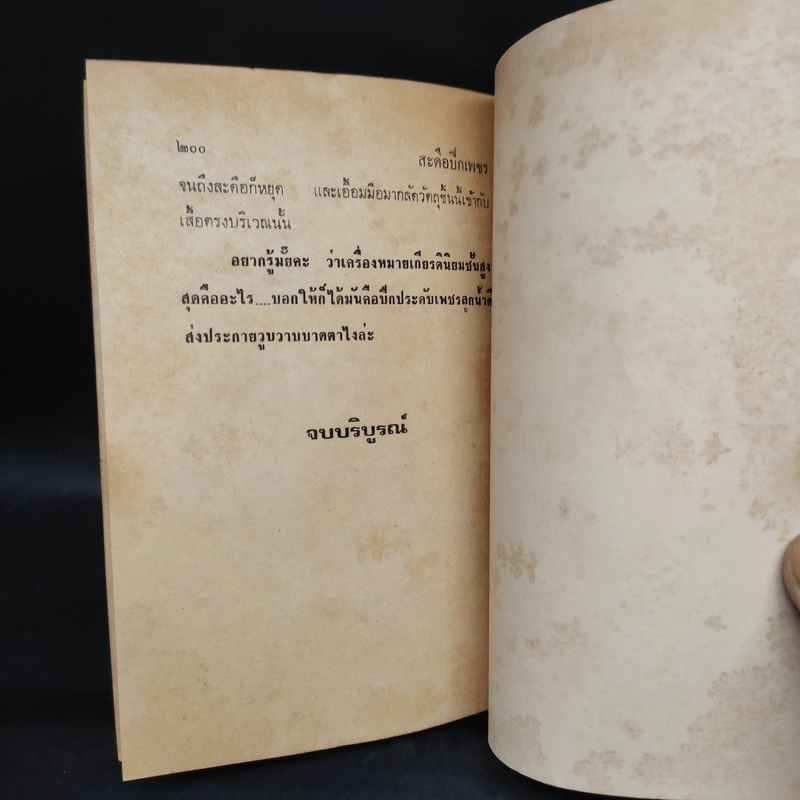 ๒๐๐
สะดือปึกเพชร
จนถึงสะดือก็หยุด และเอื้อมมือมากลัดวัตถุชิ้นนี้เข้ากับ
เสื้อตรงบริเวณนั้น
อยากรู้มั๊ยคะ ว่าเครื่องหมายเกียรตินิยมชั้นสูง
สุดคืออะไร....บอกให้ก็ได้มันคือปึกประดับเพชรลูกน้ำดี
ส่งประกายวูบวาบบาดตาไงล่ะ
จบบริบูรณ์